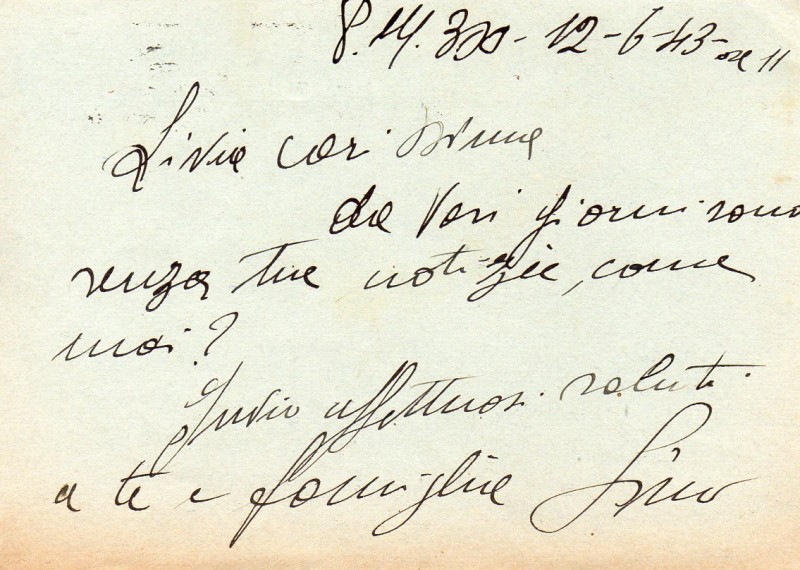 12-6-43- ore 11
Livia carissima
da vari giorni sono
senza tue notizie, come
mai?
Invio affettuosi saluti
a te e famiglia Lino